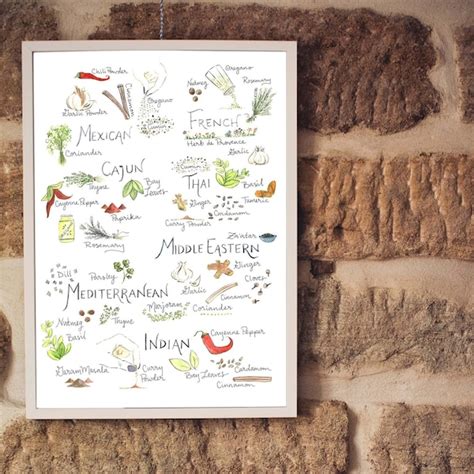 Chili Powder
Oregano
Oregano
Nutmeg
Rosemary
Garlic Powder
Cinnamon
Cumin
MEXICAN
FRENCH
Herb de Provence
Coriander
Garlic
CAJUN
Cumin
Thyme
Bay
Leaves
THAI
Basil
Cayenne Pepper
Ginger
Tumeric
Paprika
Cardamom
Curry Powder
Rosemary
Za'atar
MIDDLE EASTERN
Dill
Parsley
Ginger
Cloves
Garlic
MEDITERRANEAN
Cinnamon
Marjoram
Coriander
Nutmeg
Thyme
Basil
Cayenne Pepper
INDIAN
Garam Masala
Curry
Powder
Bay Leaves
Cardamom
Cinnamon